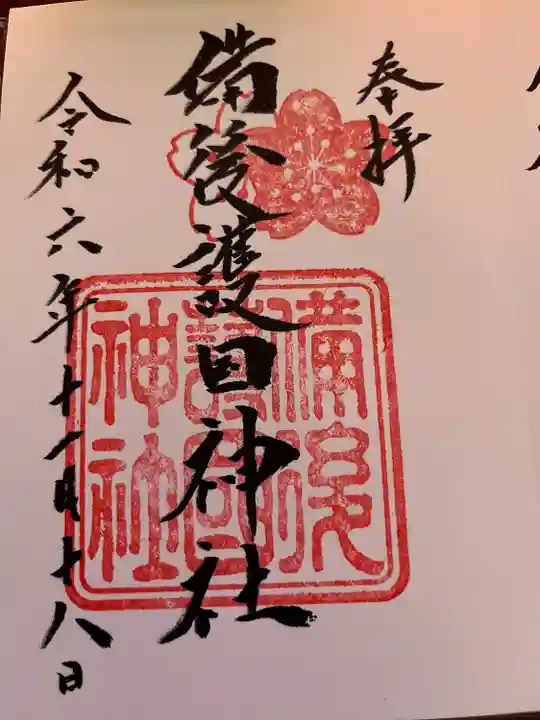 奉拝
備後護国神社
備後
護国
神社
令和六年十一月十八日